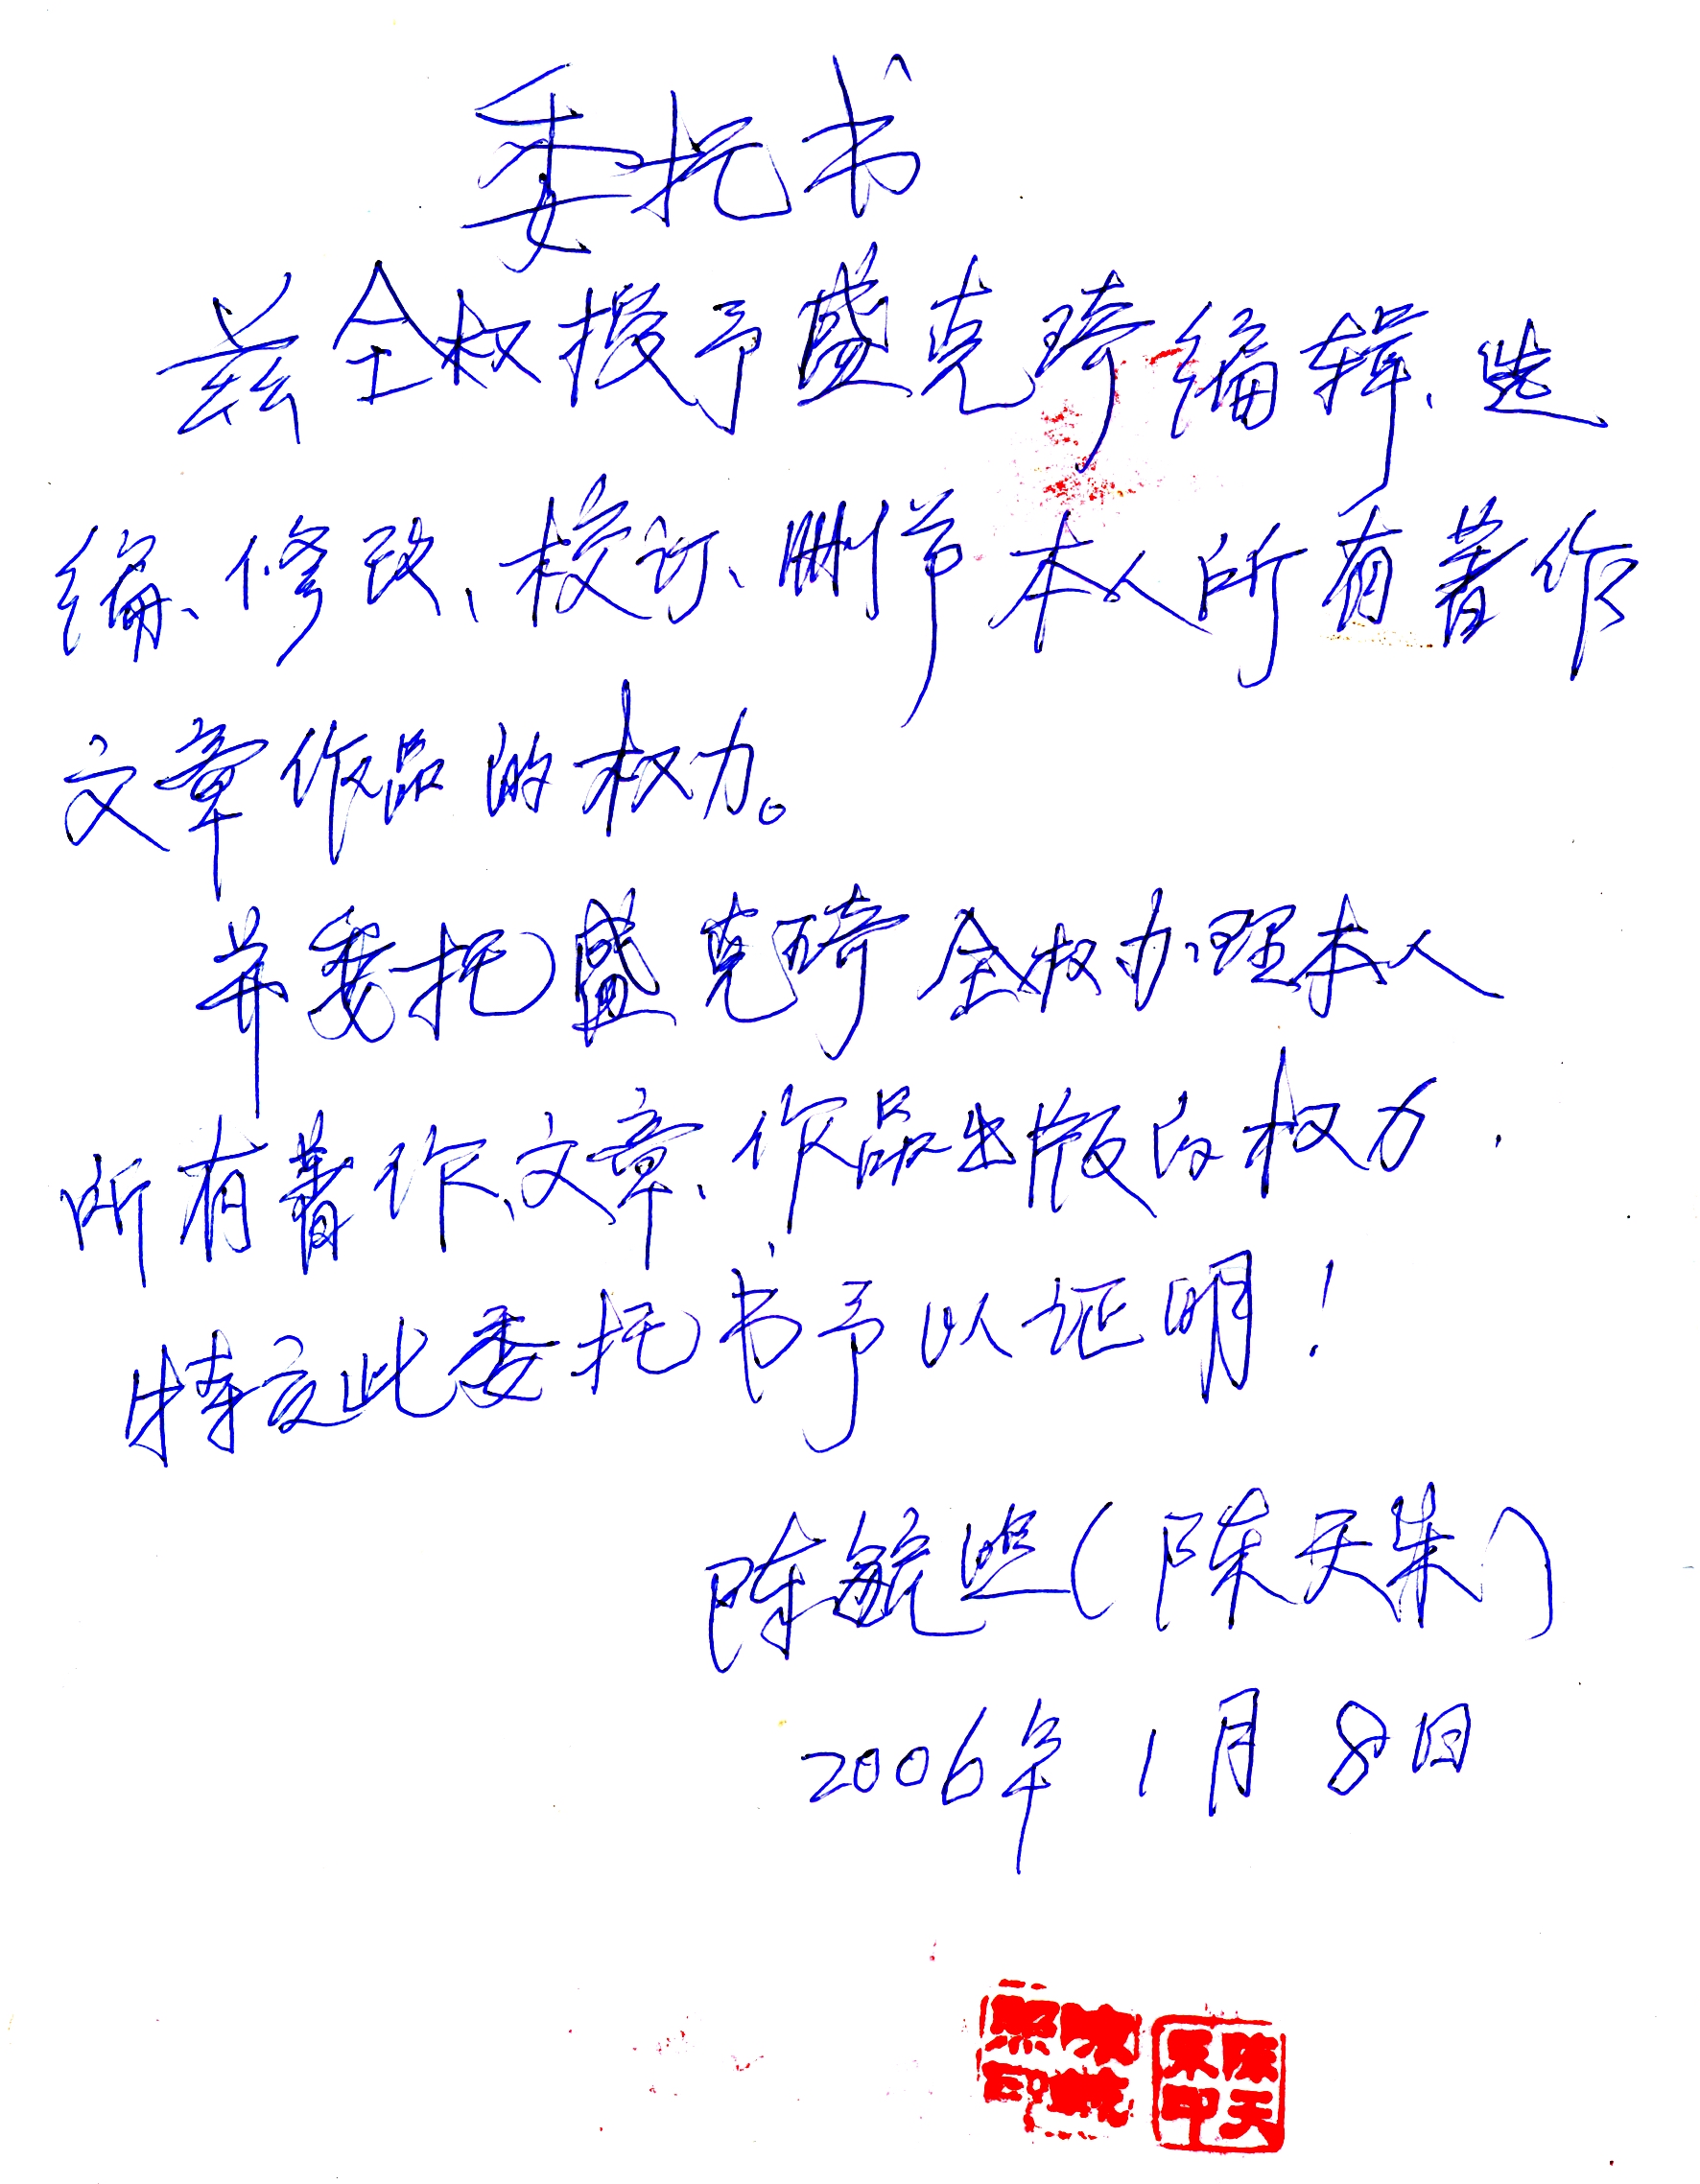 委托书
兹全权授予盛克琦编辑、选
编、修改、校订、删节本人所有著作
文章作品的权力。
并委托盛克琦全权办理本人
所有著作、文章、作品出版的权力.
特立此委托书予以证明!
陈毓照(陈天朱)
2006年1月8日
陈毓照印
陈天朱印